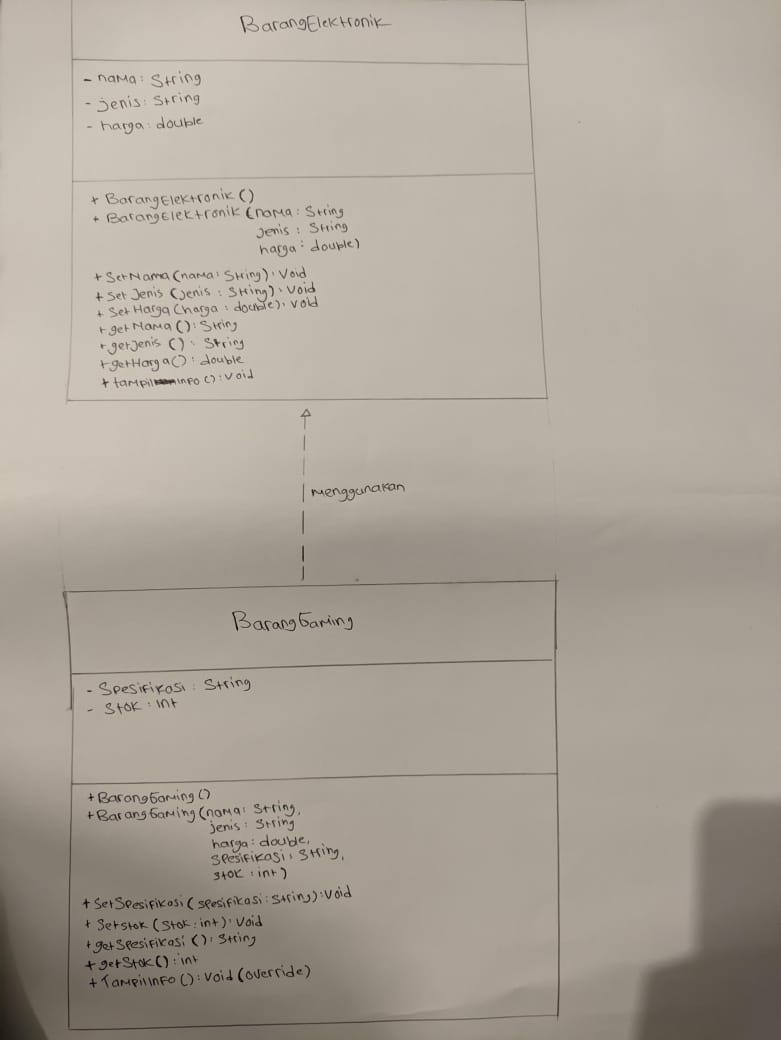 BarangElektronik
- nama : String
- jenis : String
- harga : double
+ BarangElektronik ()
+ BarangElektronik (nama : String
jenis : String
harga : double)
+ SetNama (nama : String) : Void
+ Set Jenis (jenis : String) : Void
+ Set Harga (harga : double) : void
+ get Nama () : String
+ getjenis () : String
+ getHarga () : double
+ tampil info () : void
menggunakan
BarangGaming
- Spesifikasi : String
- Stok : int
+ BarangGaming ()
+ BarangGaming (nama : String,
jenis : String
harga : double,
spesifikasi : String,
stok : int)
+ SetSpesifikasi (spesifikasi : String) : Void
+ Setstok (Stok : int) : Void
+ getSpesifikasi () : String
+ getStok () : int
+ TampilInfo () : Void (override)